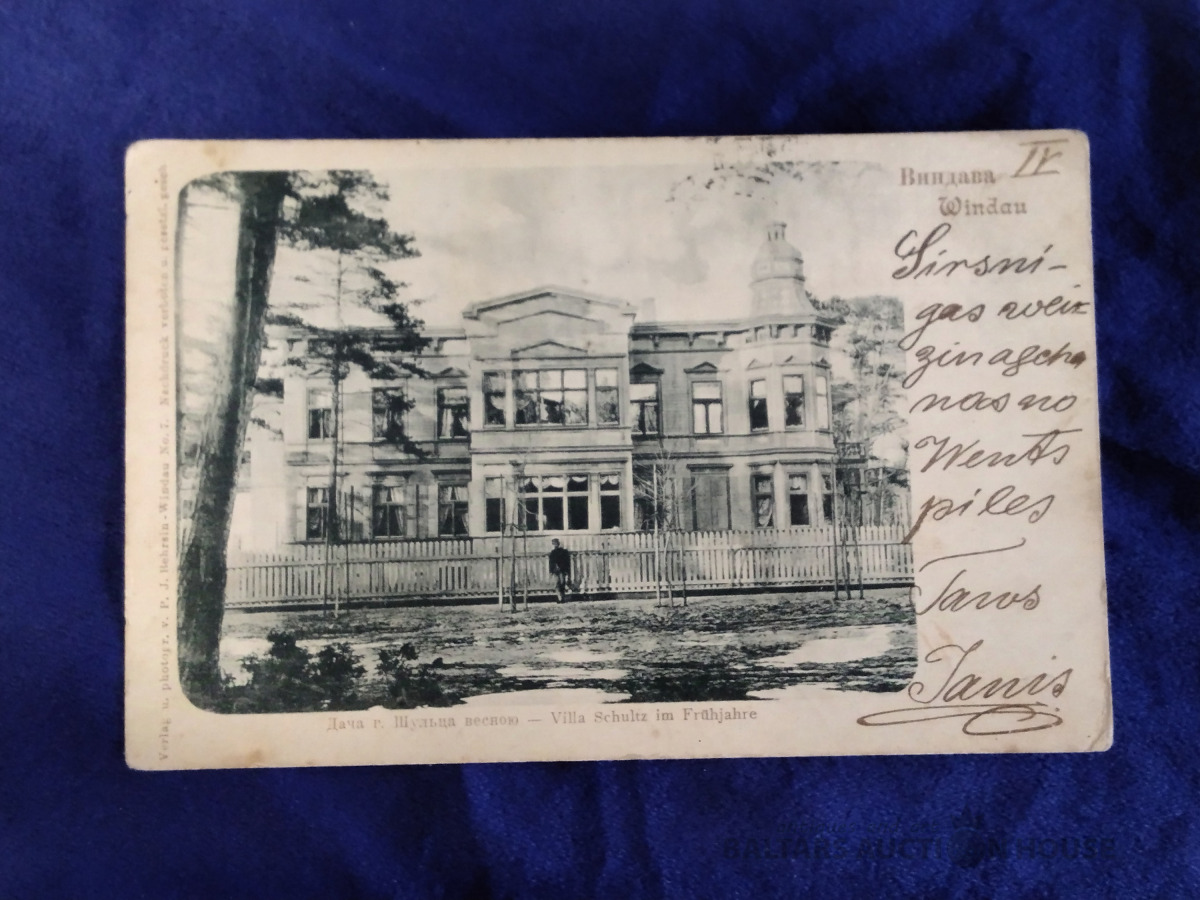 IV
Виндава
Windau
Sirsni-
gas weik
zinascha
nas no
Wents
piles
Taws
Janis
Дача г. Шульца весною — Villa Schultz im Frühjahre
Verlag u. photogr. v. P. J. Behrsin-Windau No. 7. Nachdruck verboten u. gesetzl. gesch.
BALTARS AUCTION HOUSE